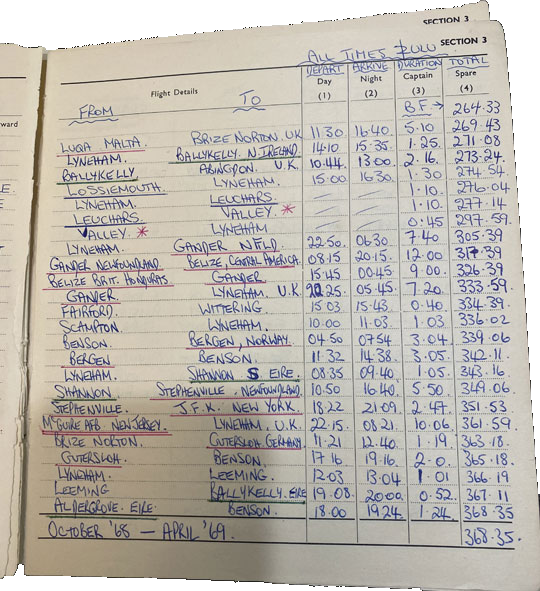 SECTION 3
SECTION 3
ALL TIMES ZULU
DEPART ARRIVE DURATION TOTAL
Flight Details Day Night Captain Spare
(1) (2) (3) (4)
ward
FROM TO BF → 264.33
LUQA MALTA BRIZE NORTON. UK 11.30 16.40 5.10 269.43
LYNEHAM. BALLYKELLY. N. IRELAND 14.10 15.35 1.25 271.08
BALLYKELLY ABINGDON U.K. 10.44 13.00 2.16 273.24
LOSSIEMOUTH. LYNEHAM. 15.00 16.30 1.30 274.54
LYNEHAM. LEUCHARS 1.10 276.04
LEUCHARS VALLEY * 1.10 277.14
VALLEY. * LYNEHAM 0.45 297.59
LYNEHAM. GANDER NFLD. 22.50 06.30 7.40 305.39
GANDER NEWFOUNDLAND BELIZE, CENTRAL AMERICA. 08.15 20.15 12.00 317.39
BELIZE BRIT. HONDURAS GANDER. 15.45 00.45 9.00 326.39
GANDER LYNEHAM. U.K 22.25 05.45 7.20 333.59
FAIRFORD. WITTERING 15.03 15.43 0.40 334.39
SCAMPTON LYNEHAM. 10.00 11.03 1.03 336.02
BENSON. BERGEN, NORWAY. 04.50 07.54 3.04 339.06
BERGEN BENSON. 11.32 14.38 3.05 342.11
LYNEHAM. SHANNON EIRE. 08.35 09.40 1.05 343.16
SHANNON STEPHENVILLE, NEWFOUNDLAND. 10.50 16.40 5.50 349.06
STEPHENVILLE. J.F.K. NEW YORK. 18.22 21.09 2.47 351.53
McGUIRE AFB NEW JERSEY. LYNEHAM, U.K. 22.15 08.21 10.06 361.59
BRIZE NORTON. GUTERSLOH GERMANY. 11.21 12.40 1.19 363.18
GUTERSLOH BENSON. 17.16 19.16 2.0 365.18
LYNEHAM LEEMING. 12.03 13.04 1.01 366.19
LEEMING BALLYKELLY. EIRE 19.08. 20.00 0.52 367.11
ALDERGROVE. EIRE. BENSON. 18.00 19.24 1.24 368.35
OCTOBER '68 — APRIL '69. 368.35.